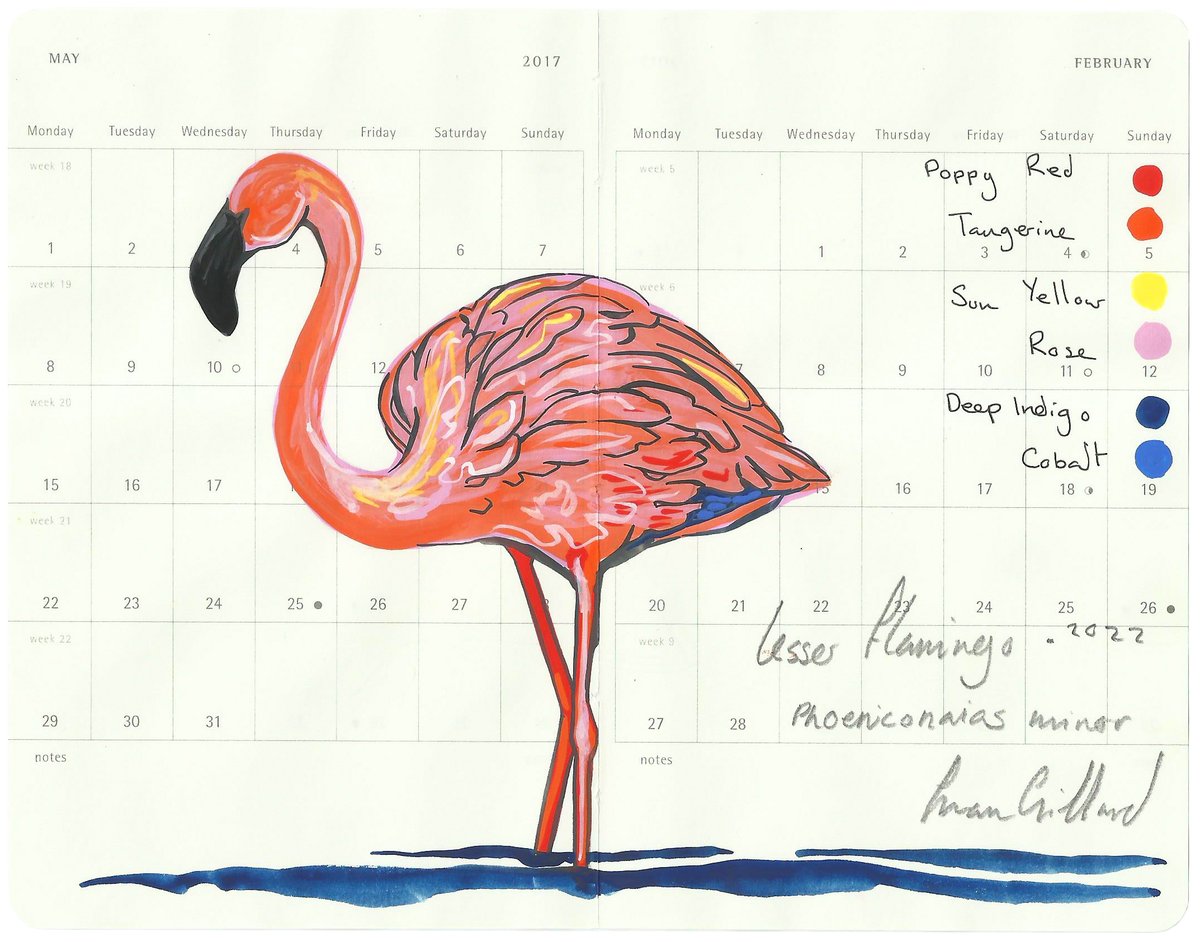 MAY 2017
Monday Tuesday Wednesday Thursday Friday Saturday Sunday
week 18
1 2 4 5 6 7
week 19
8 9 10 12
week 20
15 16 17
week 21
22 23 24 25 26 27
week 22
29 30 31
notes
FEBRUARY
Monday Tuesday Wednesday Thursday Friday Saturday Sunday
week 5
Poppy Red
Tangerine
1 2 3 4 5
week 6
Sun Yellow
Rose
7 8 9 10 11 12
Deep Indigo
Cobalt
15 16 17 18 19
20 21 22 23 24 25 26
week 9
Lesser Flamingo .2022
Phoeniconaias minor
27 28
notes